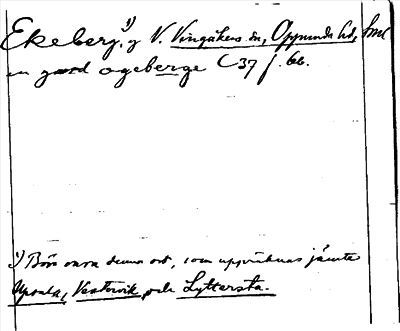 Ekeberg, ¹) g V. Vingåkers sn, Oppunda hd, Sml
en gård ogeberge C 37 f. 66.
¹) Bör vara denna ort, som uppräknas jämte
Upsala, Vestervik och Lyttersta.